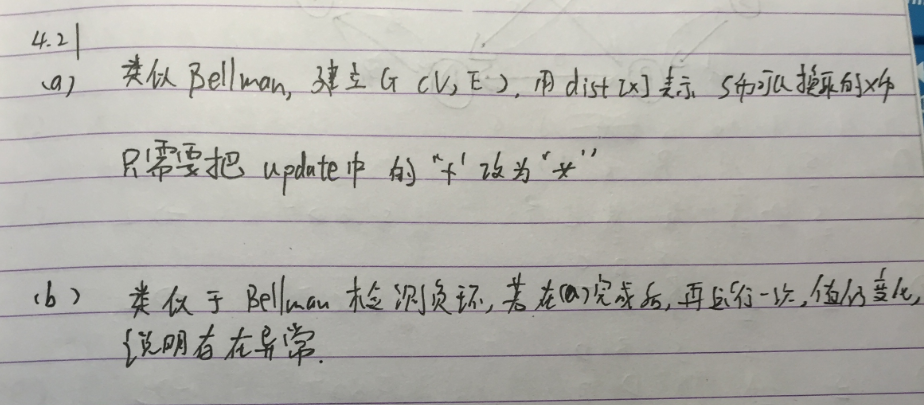 4.21
(a) 类似 Bellman, 建立 G (V, E), 用 dist[x] 表示 s币可以换取的x币
只需要把 update中 的 "+" 改为 "*"
(b) 类似于 Bellman 检测负环, 若在(a)完成后, 再运行一次, 值仍变化,
说明存在异常.